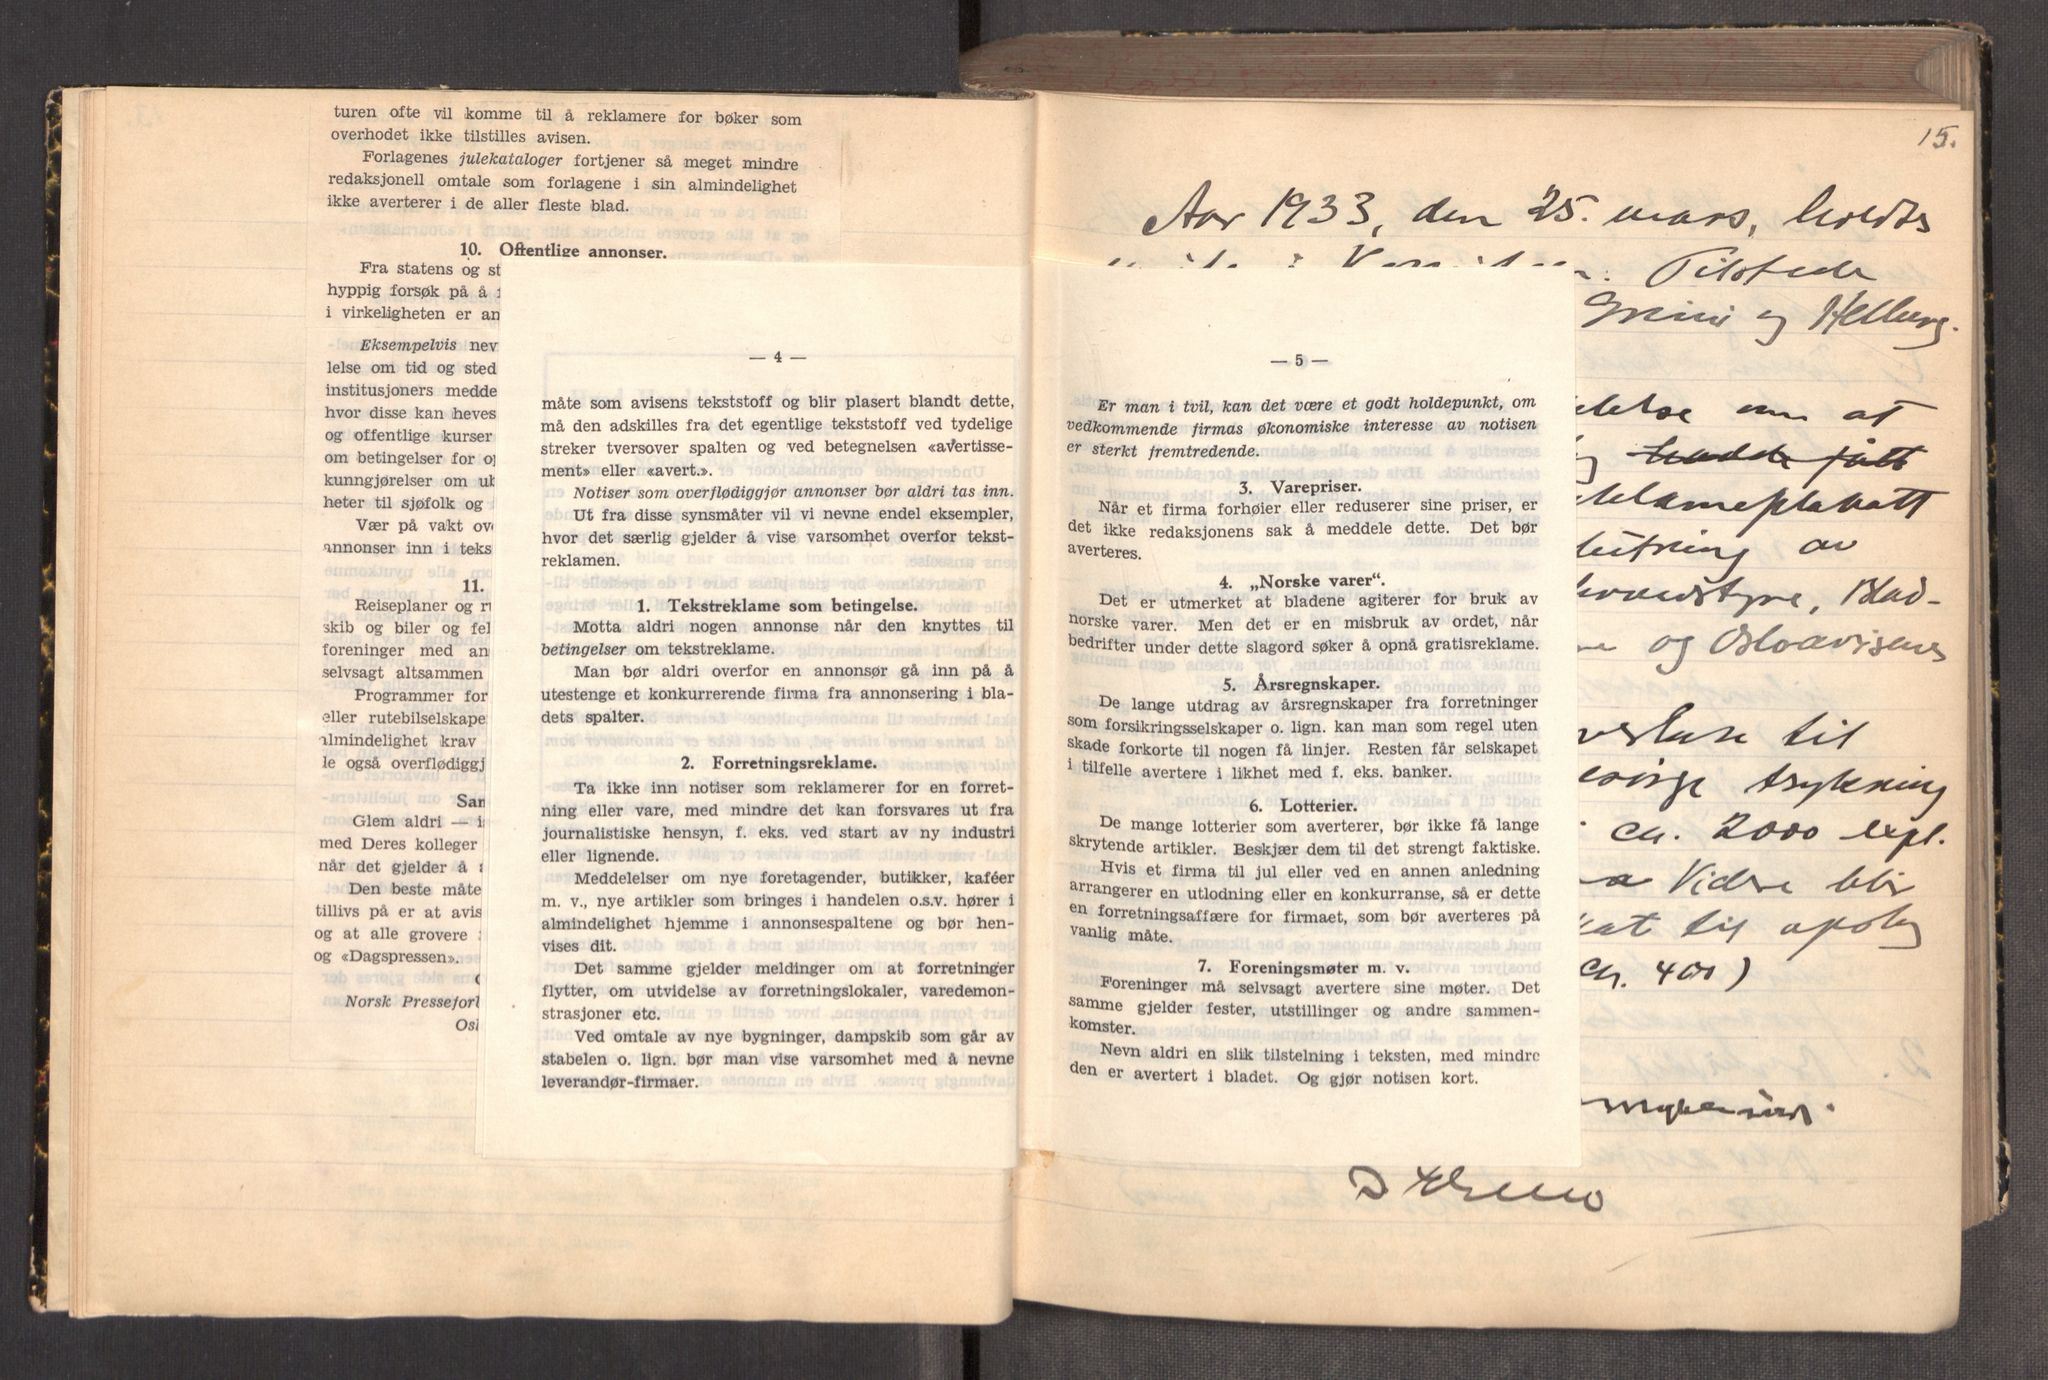 turen ofte vil komme til å reklamere for bøker som
overhodet ikke tilstilles avisen.
Forlagenes julekataloger fortjener så meget mindre
redaksjonell omtale som forlagene i sin almindelighet
ikke averterer i de aller fleste blad.
10. Offentlige annonser.
Fra statens og st
hyppig forsøk på å
i virkeligheten er an
Eksempelvis nev
lelse om tid og sted
institusjoners medde
hvor disse kan heves
og offentlige kurser
om betingelser for op
kunngjørelser om ut
heter til sjøfolk og
Vær på vakt ove
annonser inn i teks
11.
Reiseplaner og ru
skib og biler og fel
foreninger med an
selvsagt altsammen
Programmer for
eller rutebilselskape
almindelighet krav
le også overflødiggj
San
Glem aldri — i
med Deres kolleger
når det gjelder å
Den beste måte
tillivs på er at avis
og at alle grovere
og «Dagspressen».
Norsk Pressefor
Osl
— 4 —
måte som avisens tekststoff og blir plasert blandt dette,
må den adskilles fra det egentlige tekststoff ved tydelige
streker tversover spalten og ved betegnelsen «avertisse-
ment» eller «avert.».
Notiser som overflødiggjør annonser bør aldri tas inn.
Ut fra disse synsmåter vil vi nevne endel eksempler,
hvor det særlig gjelder å vise varsomhet overfor tekst-
reklamen.
1. Tekstreklame som betingelse.
Motta aldri nogen annonse når den knyttes til
betingelser om tekstreklame.
Man bør aldri overfor en annonsør gå inn på å
utestenge et konkurrerende firma fra annonsering i bla-
dets spalter.
2. Forretningsreklame.
Ta ikke inn notiser som reklamerer for en forret-
ning eller vare, med mindre det kan forsvares ut fra
journalistiske hensyn, f. eks. ved start av ny industri
eller lignende.
Meddelelser om nye foretagender, butikker, kaféer
m. v., nye artikler som bringes i handelen o.s.v. hører i
almindelighet hjemme i annonsespaltene og bør hen-
vises dit.
Det samme gjelder meldinger om at forretninger
flytter, om utvidelse av forretningslokaler, varedemon-
strasjoner etc.
Ved omtale av nye bygninger, dampskib som går av
stabelen o. lign. bør man vise varsomhet med å nevne
leverandør-firmaer.
— 5 —
Er man i tvil, kan det være et godt holdepunkt, om
vedkommende firmas økonomiske interesse av notisen
er sterkt fremtredende.
3. Varepriser.
Når et firma forhøier eller reduserer sine priser, er
det ikke redaksjonens sak å meddele dette. Det bør
averteres.
4. „Norske varer".
Det er utmerket at bladene agiterer for bruk av
norske varer. Men det er en misbruk av ordet, når
bedrifter under dette slagord søker å opnå gratisreklame.
5. Årsregnskaper.
De lange utdrag av årsregnskaper fra forretninger
som forsikringsselskaper o. lign. kan man som regel uten
skade forkorte til nogen få linjer. Resten får selskapet
i tilfelle avertere i likhet med f. eks. banker.
6. Lotterier.
De mange lotterier som averterer, bør ikke få lange
skrytende artikler. Beskjær dem til det strengt faktiske.
Hvis et firma til jul eller ved en annen anledning
arrangerer en utlodning eller en konkurranse, så er dette
en forretningsaffære for firmaet, som bør averteres på
vanlig måte.
7. Foreningsmøter m. v.
Foreninger må selvsagt avertere sine møter. Det
samme gjelder fester, utstillinger og andre sammen-
komster.
Nevn aldri en slik tilstelning i teksten, med mindre
den er avertert i bladet. Og gjør notisen kort.
15.
Aar 1933, den 25. mars, holdtes
Tilstede
og Helberg.
delse om at
hadde fått
reklameplakatt
av
Blad-
og Osloavisenes
til
trykning
ca. 2000 expl.
Videre blir
til
ca. 400)